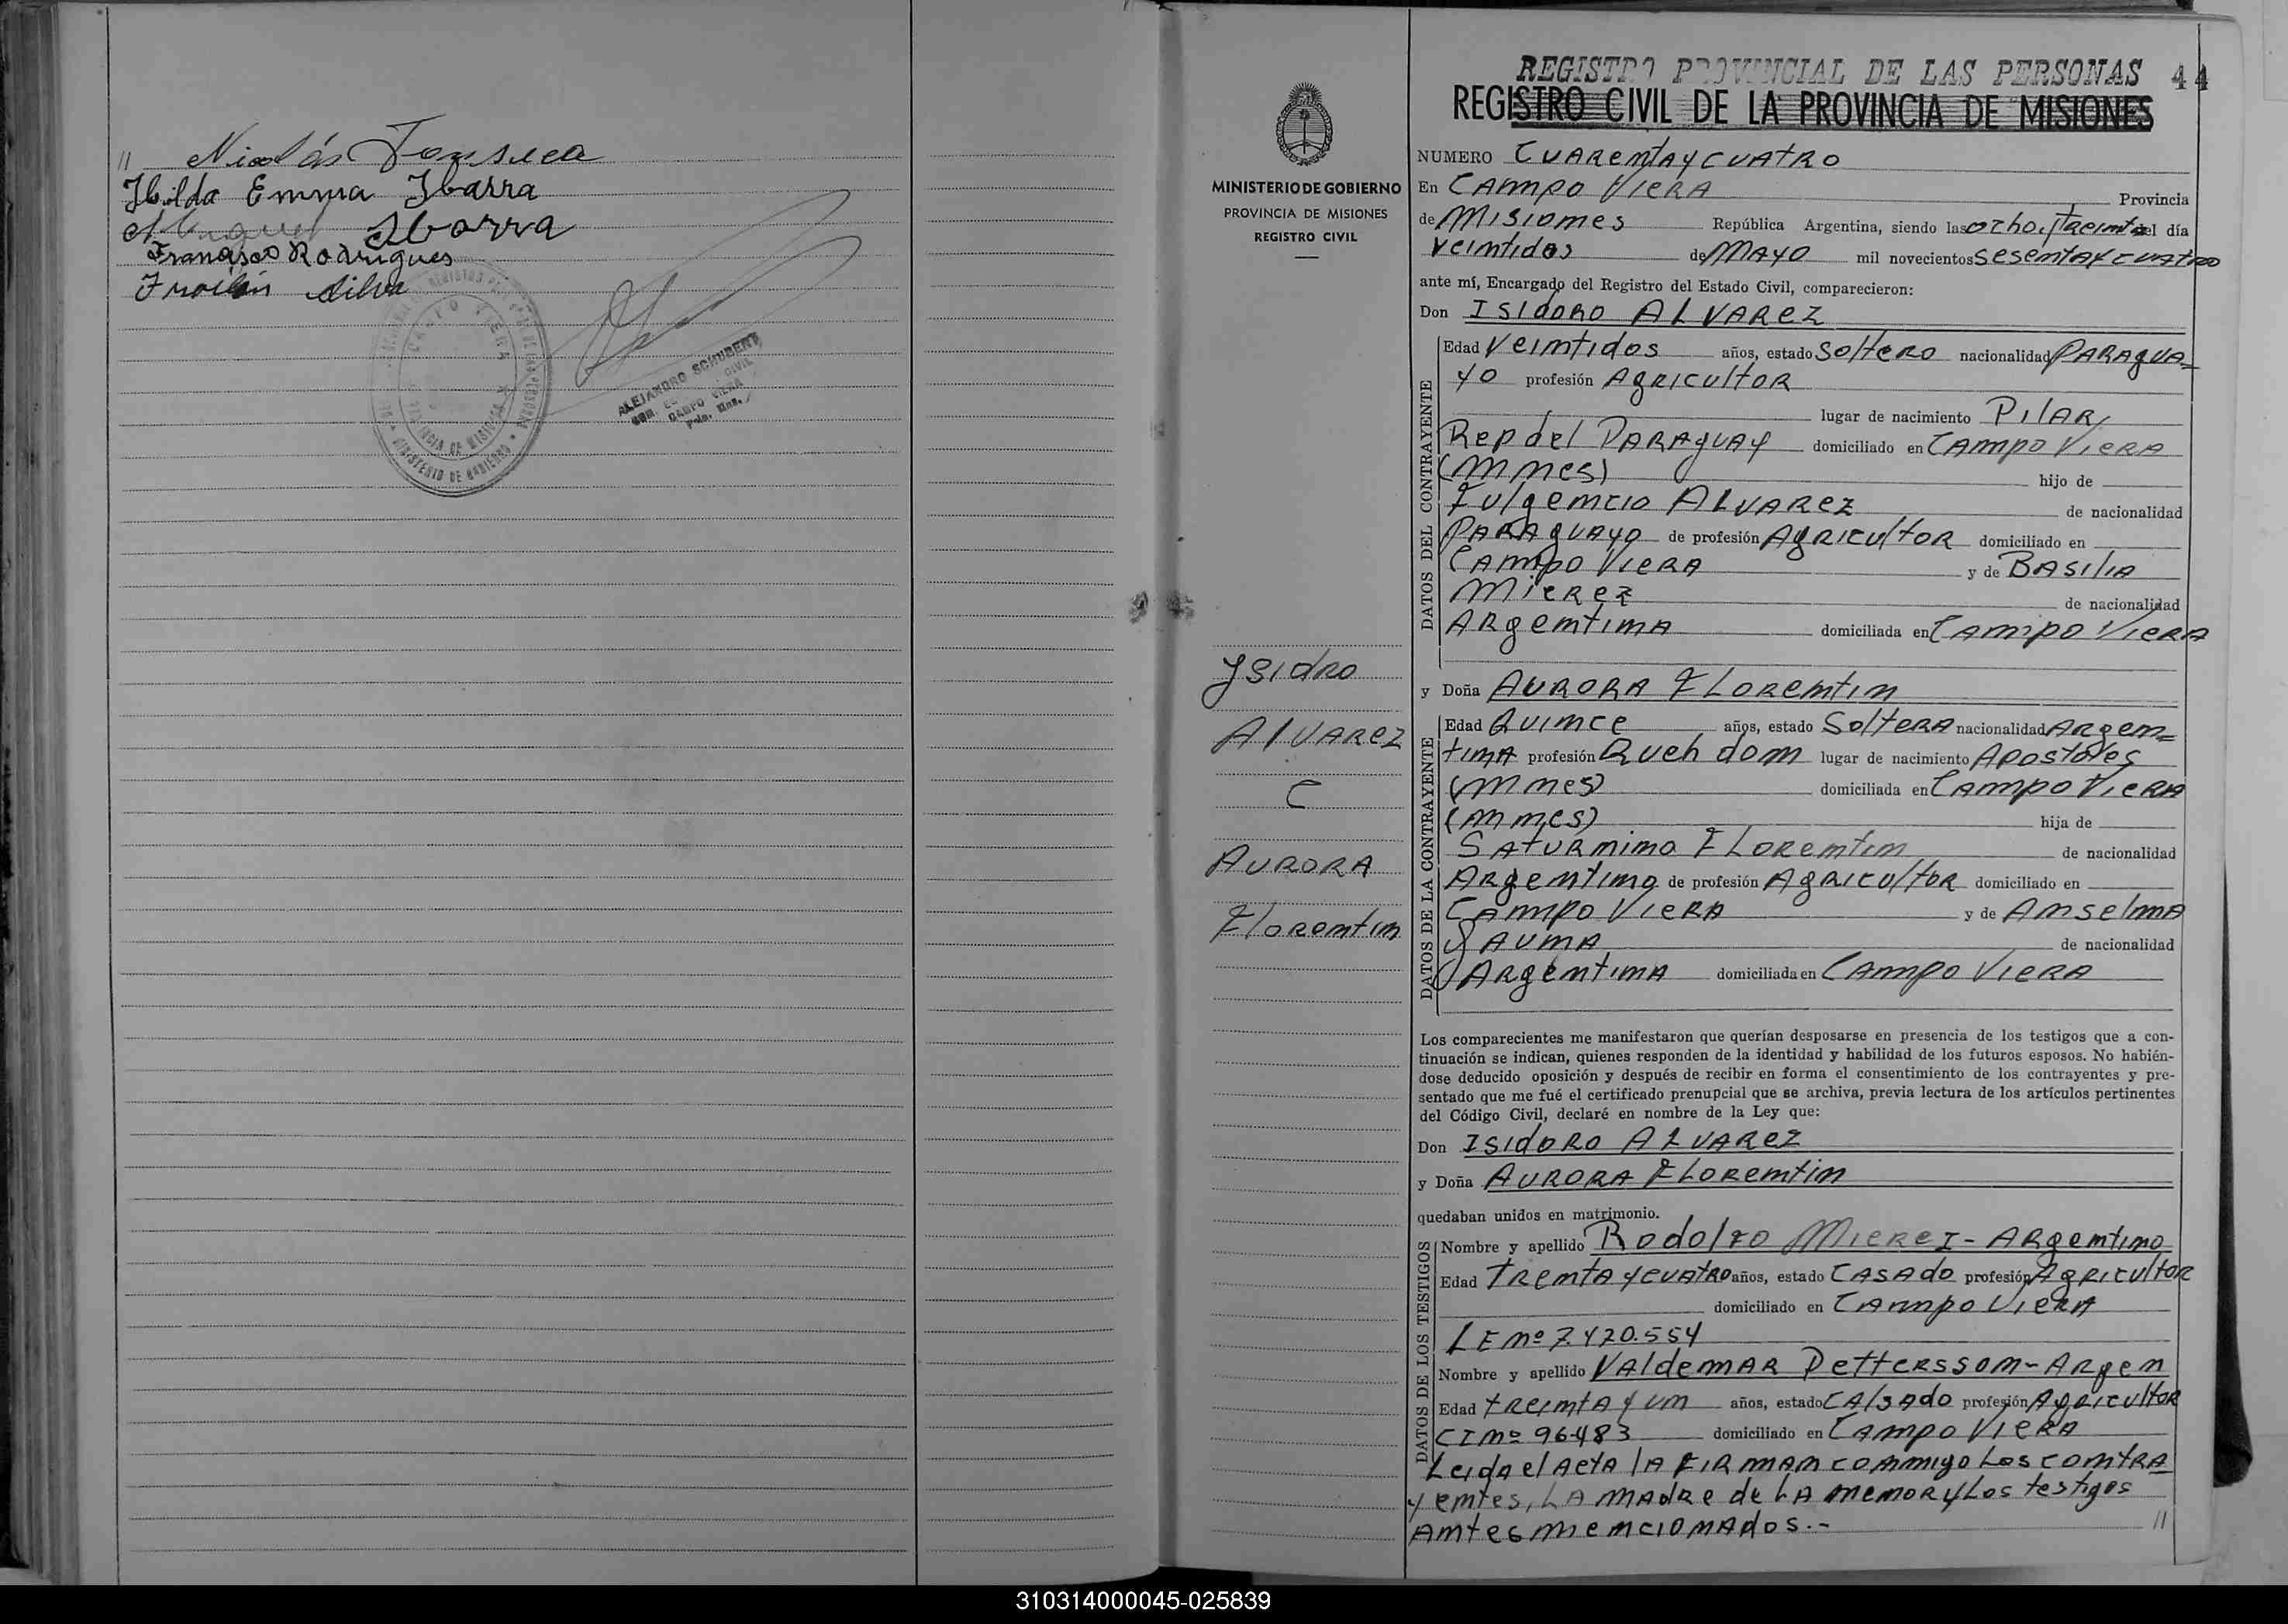 // Nicolás Fonseca
Hilda Emma Ibarra
Miguel Ibarra
Francisco Rodrigues
Froilán Silva
CAMPO VIERA
MINISTERIO DE GOBIERNO
ALEJANDRO SCHUBERT
CIVIL
CAMPO VIERA
REGISTRO PROVINCIAL DE LAS PERSONAS 44
REGISTRO CIVIL DE LA PROVINCIA DE MISIONES
MINISTERIO DE GOBIERNO
PROVINCIA DE MISIONES
REGISTRO CIVIL
Ysidro
Alvarez
e
Aurora
Florentin
NUMERO Cuarenta y cuatro
En Campo Viera Provincia
de Misiones República Argentina, siendo las ocho y treinta del día
veintidos de Mayo mil novecientos sesenta y cuatro
ante mí, Encargado del Registro del Estado Civil, comparecieron:
Don Isidoro Alvarez
DATOS DEL CONTRAYENTE
Edad veintidos años, estado soltero nacionalidad Paragua-
yo profesión Agricultor
lugar de nacimiento Pilar
Rep del Paraguay domiciliado en Campo Viera
(Mnes) hijo de
Fulgencio Alvarez de nacionalidad
Paraguayo de profesión Agricultor domiciliado en
Campo Viera y de Basilia
Mierez de nacionalidad
Argentina domiciliada en Campo Viera
y Doña Aurora Florentin
DATOS DE LA CONTRAYENTE
Edad Quince años, estado soltera nacionalidad Argen-
tina profesión Queh dom lugar de nacimiento Apostoles
(Mnes) domiciliada en Campo Viera
(Mnes) hija de
Saturnino Florentin de nacionalidad
Argentino de profesión Agricultor domiciliado en
Campo Viera y de Anselma
Gauna de nacionalidad
Argentina domiciliada en Campo Viera
Los comparecientes me manifestaron que querían desposarse en presencia de los testigos que a con-
tinuación se indican, quienes responden de la identidad y habilidad de los futuros esposos. No habién-
dose deducido oposición y después de recibir en forma el consentimiento de los contrayentes y pre-
sentado que me fué el certificado prenupcial que se archiva, previa lectura de los artículos pertinentes
del Código Civil, declaré en nombre de la Ley que:
Don Isidoro Alvarez
y Doña Aurora Florentin
quedaban unidos en matrimonio.
DATOS DE LOS TESTIGOS
Nombre y apellido Rodolfo Mierez - Argentino
Edad trenta y cuatro años, estado casado profesión Agricultor
domiciliado en Campo Viera
LE nº 7.420.554
Nombre y apellido Valdemar Pettersson - Argen
Edad treinta y un años, estado calsado profesión Agricultor
CI nº 96483 domiciliado en Campo Viera
Leida el acta la firman conmigo los contra
yentes, la madre de la menor y los testigos
antes mencionados.- //
310314000045-025839